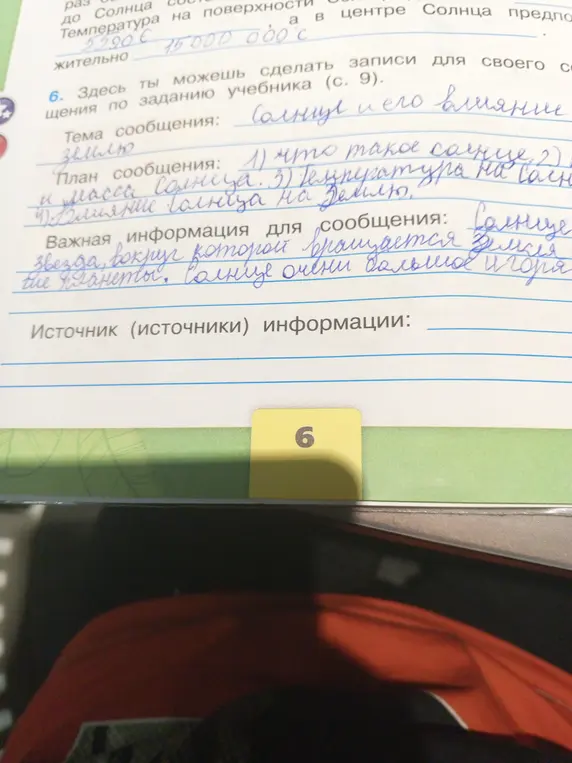 раз
до Солнца
Температура на поверхности
, а в центре Солнца предпо
жительно 15 000 000 С
6. Здесь ты можешь сделать записи для своего со
щения по заданию учебника (с. 9).
Тема сообщения: Солнце и его влияние
землю
План сообщения: 1) что такое солнце, 2)
и масса Солнца. 3) Температура на Солн
4) Влияние Солнца на Землю.
Важная информация для сообщения: Солнце
звезда, вокруг которой вращается Земля
планеты. Солнце очени большое и горя
Источник (источники) информации:
6